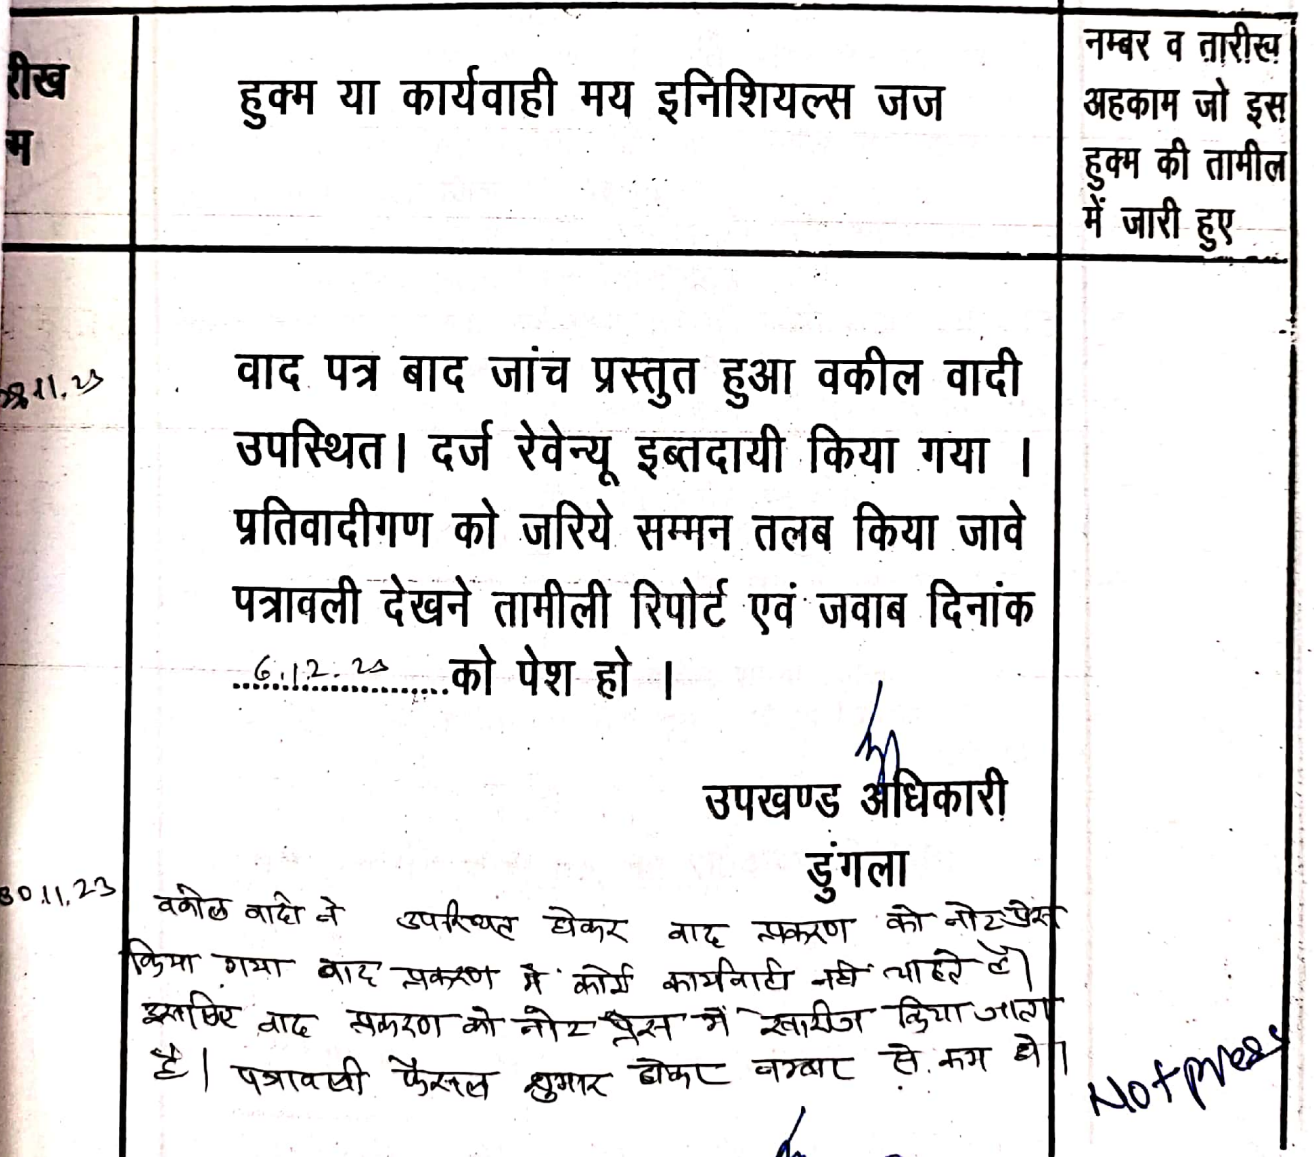 रीख
म
हुक्म या कार्यवाही मय इनिशियल्स जज
नम्बर व तारीख
अहकाम जो इस
हुक्म की तामील
में जारी हुए
28.11.23
वाद पत्र बाद जांच प्रस्तुत हुआ वकील वादी
उपस्थित। दर्ज रेवेन्यू इब्तदायी किया गया ।
प्रतिवादीगण को जरिये सम्मन तलब किया जावे
पत्रावली देखने तामीली रिपोर्ट एवं जवाब दिनांक
6.12.23 को पेश हो ।
उपखण्ड अधिकारी
डुंगला
30.11.23
वकील वादी ने उपस्थित होकर वाद प्रकरण को नोट प्रेस
किया गया वाद प्रकरण में कोई कार्यवाही नहीं चाहते है।
इसलिए वाद प्रकरण को नोट प्रेस में खारीज किया जाता
है। पत्रावली फैसल शुमार होकर नम्बर से कम हो।
Notpress